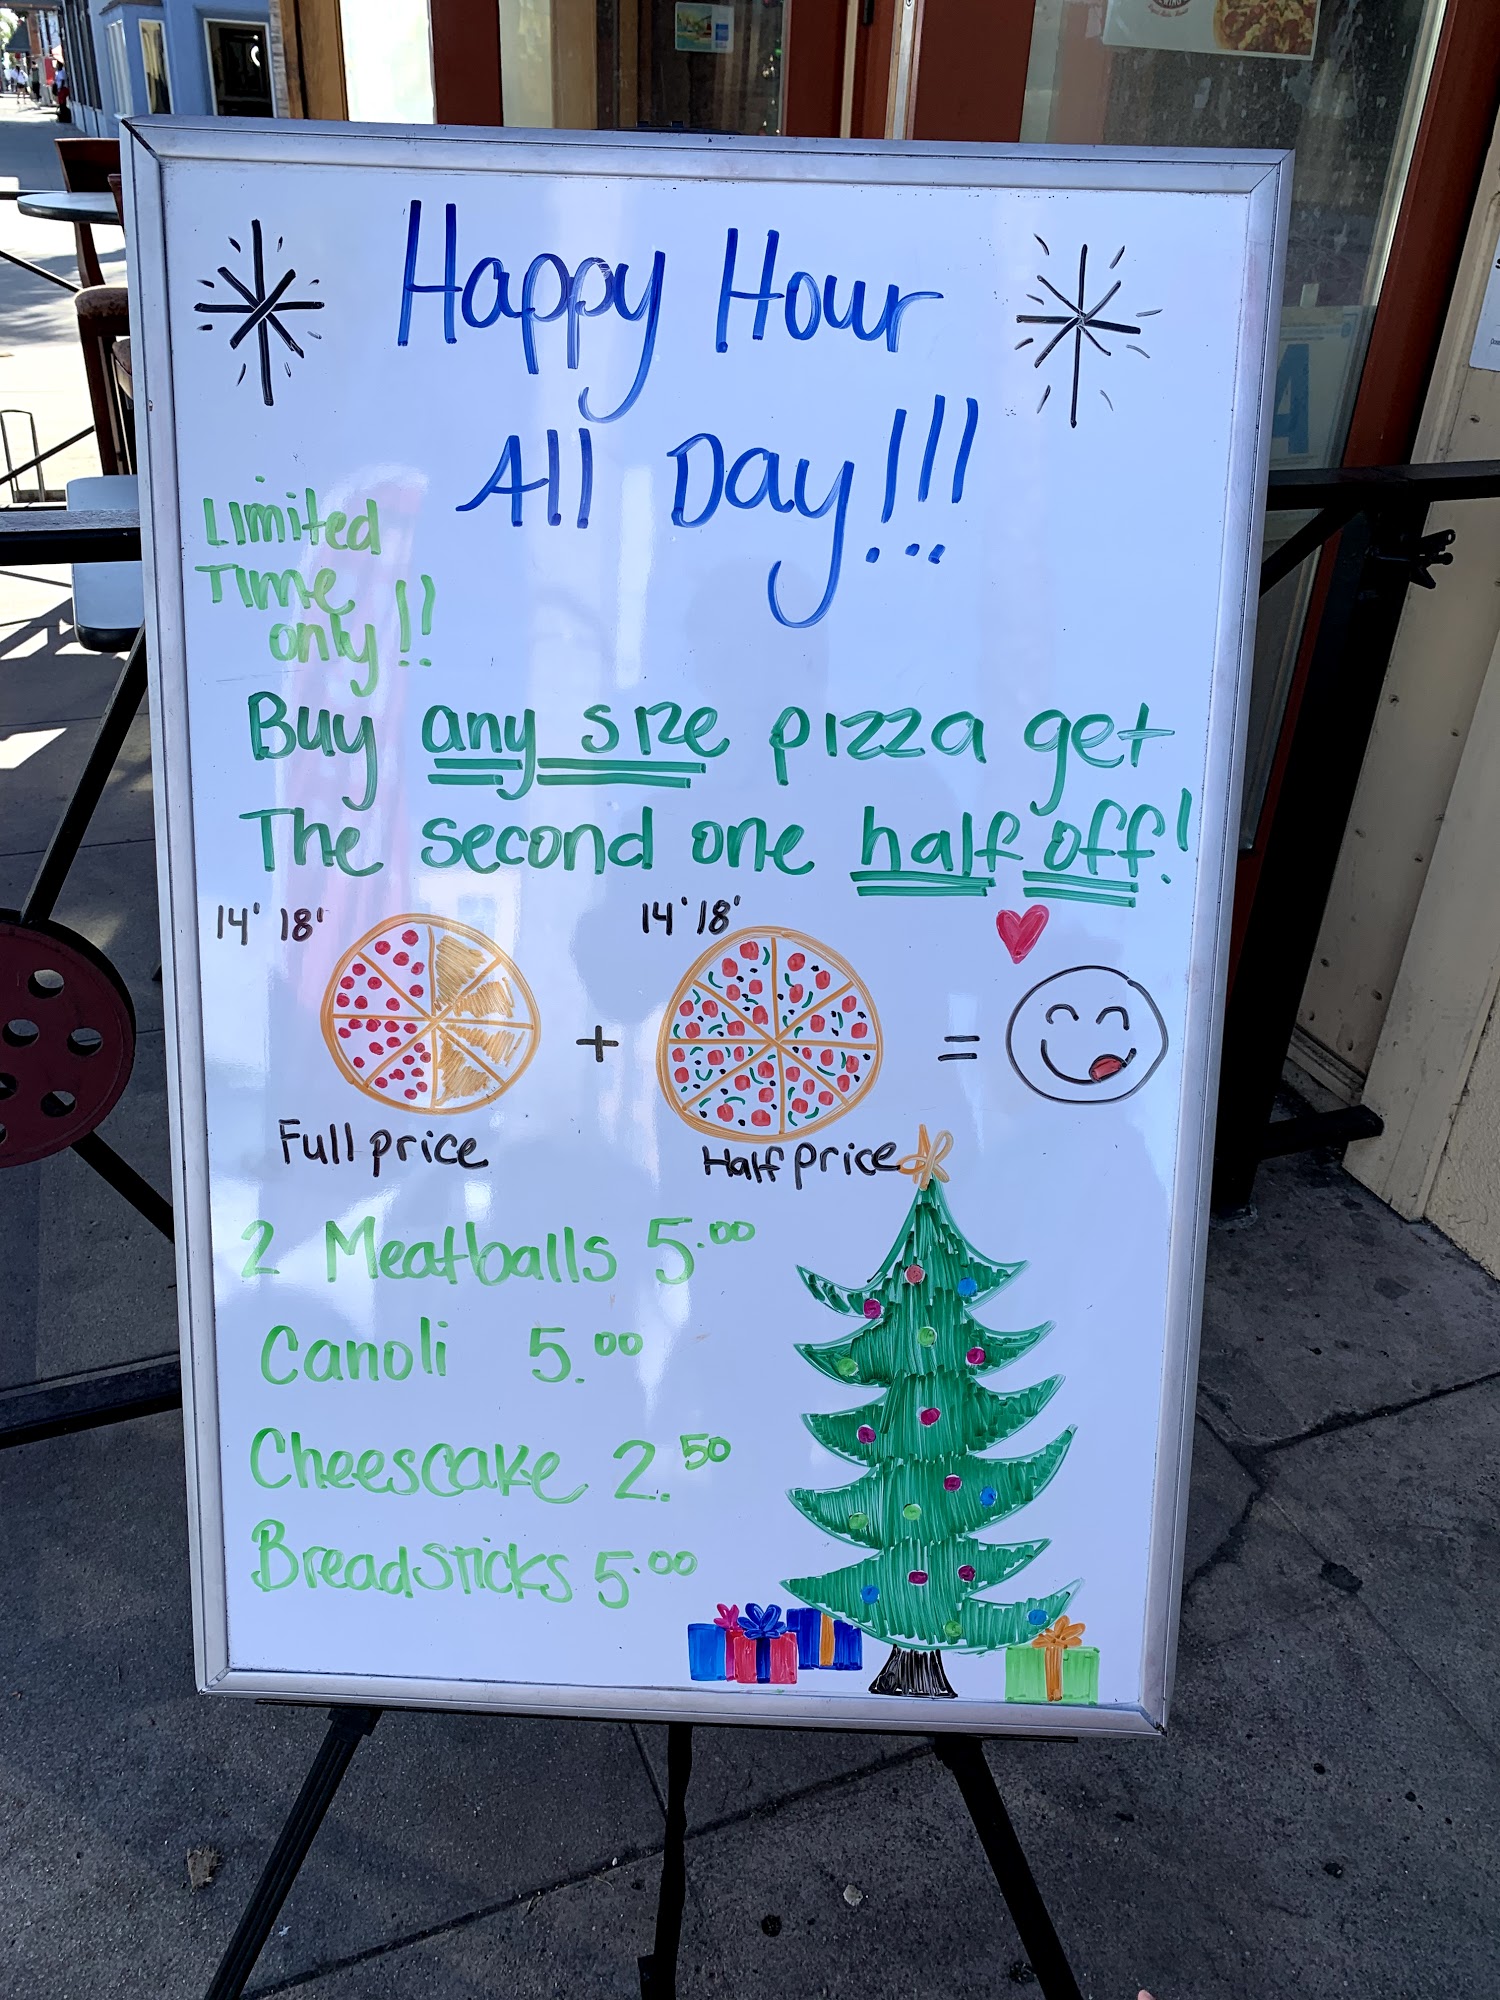 Happy Hour
All Day!!!
Limited
Time
only!!
Buy any size pizza get
The second one half off!
14' 18'
14' 18'
+
=
Full price
Half price
2 Meatballs 5.00
Canoli 5.00
Cheescake 2.50
Breadsticks 5.00